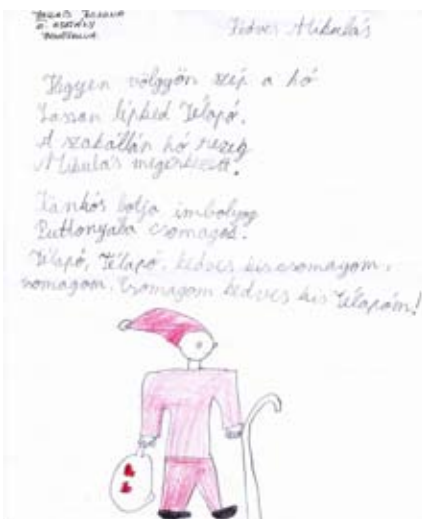 Kedves Mikulás
Hegyen völgyön szép a hó
Lassan lépked Télapó,
A szakállán hó rezeg
Mikulás megérkezett.
botja imbolyog
Puttonyába csomagod.
Télapó, Télapó, kedves kis csomagom,
csomagom, Csomagom kedves kis Télapóm!